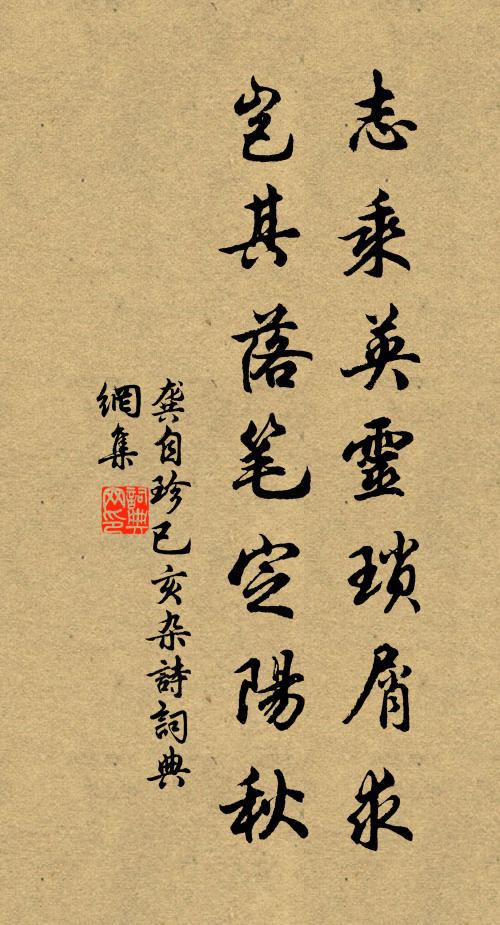 志乘英靈瑣屑求
豈其落笔定陽秋
龔自珍已亥杂詩詞典
網集
詞典网印